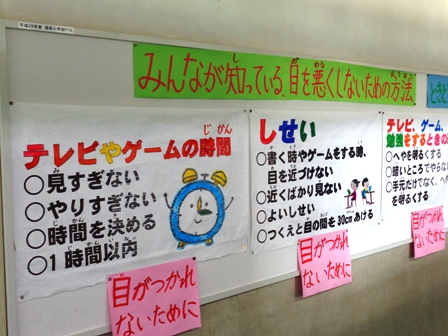 みんなが知っている、目を悪くしないための方法。
テレビやゲームの時間
○見すぎない
○やりすぎない
○時間を決める
○1時間以内
目がつかれ
ないために
しせい
○書く時やゲームをする時、
目を近づけない
○近くばかり見ない
○よいしせい
○つくえと目の間を30cmあける
目がつかれ
ないために
テレビ、ゲーム、
勉強をするときの
○へやを明るくする
○暗いところでやらな
○手元だけでなく、へ
を明るくする
目がつかれ
ないために